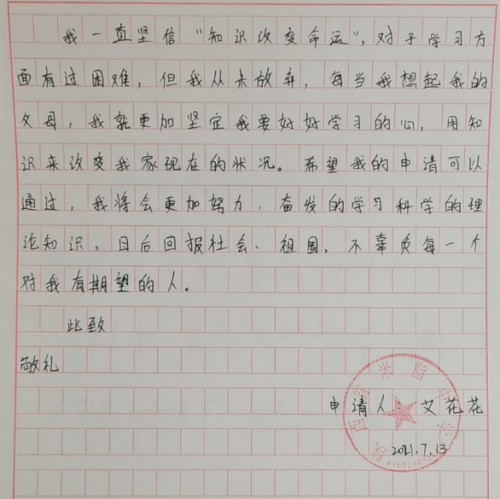 我一直坚信“知识改变命运”,对于学习方
面有过困难,但我从未放弃,每当我想起我的
父母,我就更加坚定我要好好学习的心,用知
识来改变我家现在的状况。希望我的申请可以
通过,我将会更加努力,奋发的学习科学的理
论知识,日后回报社会、祖国,不辜负每一个
对我有期望的人。
此致
敬礼
申请人 艾花花
2021.7.13